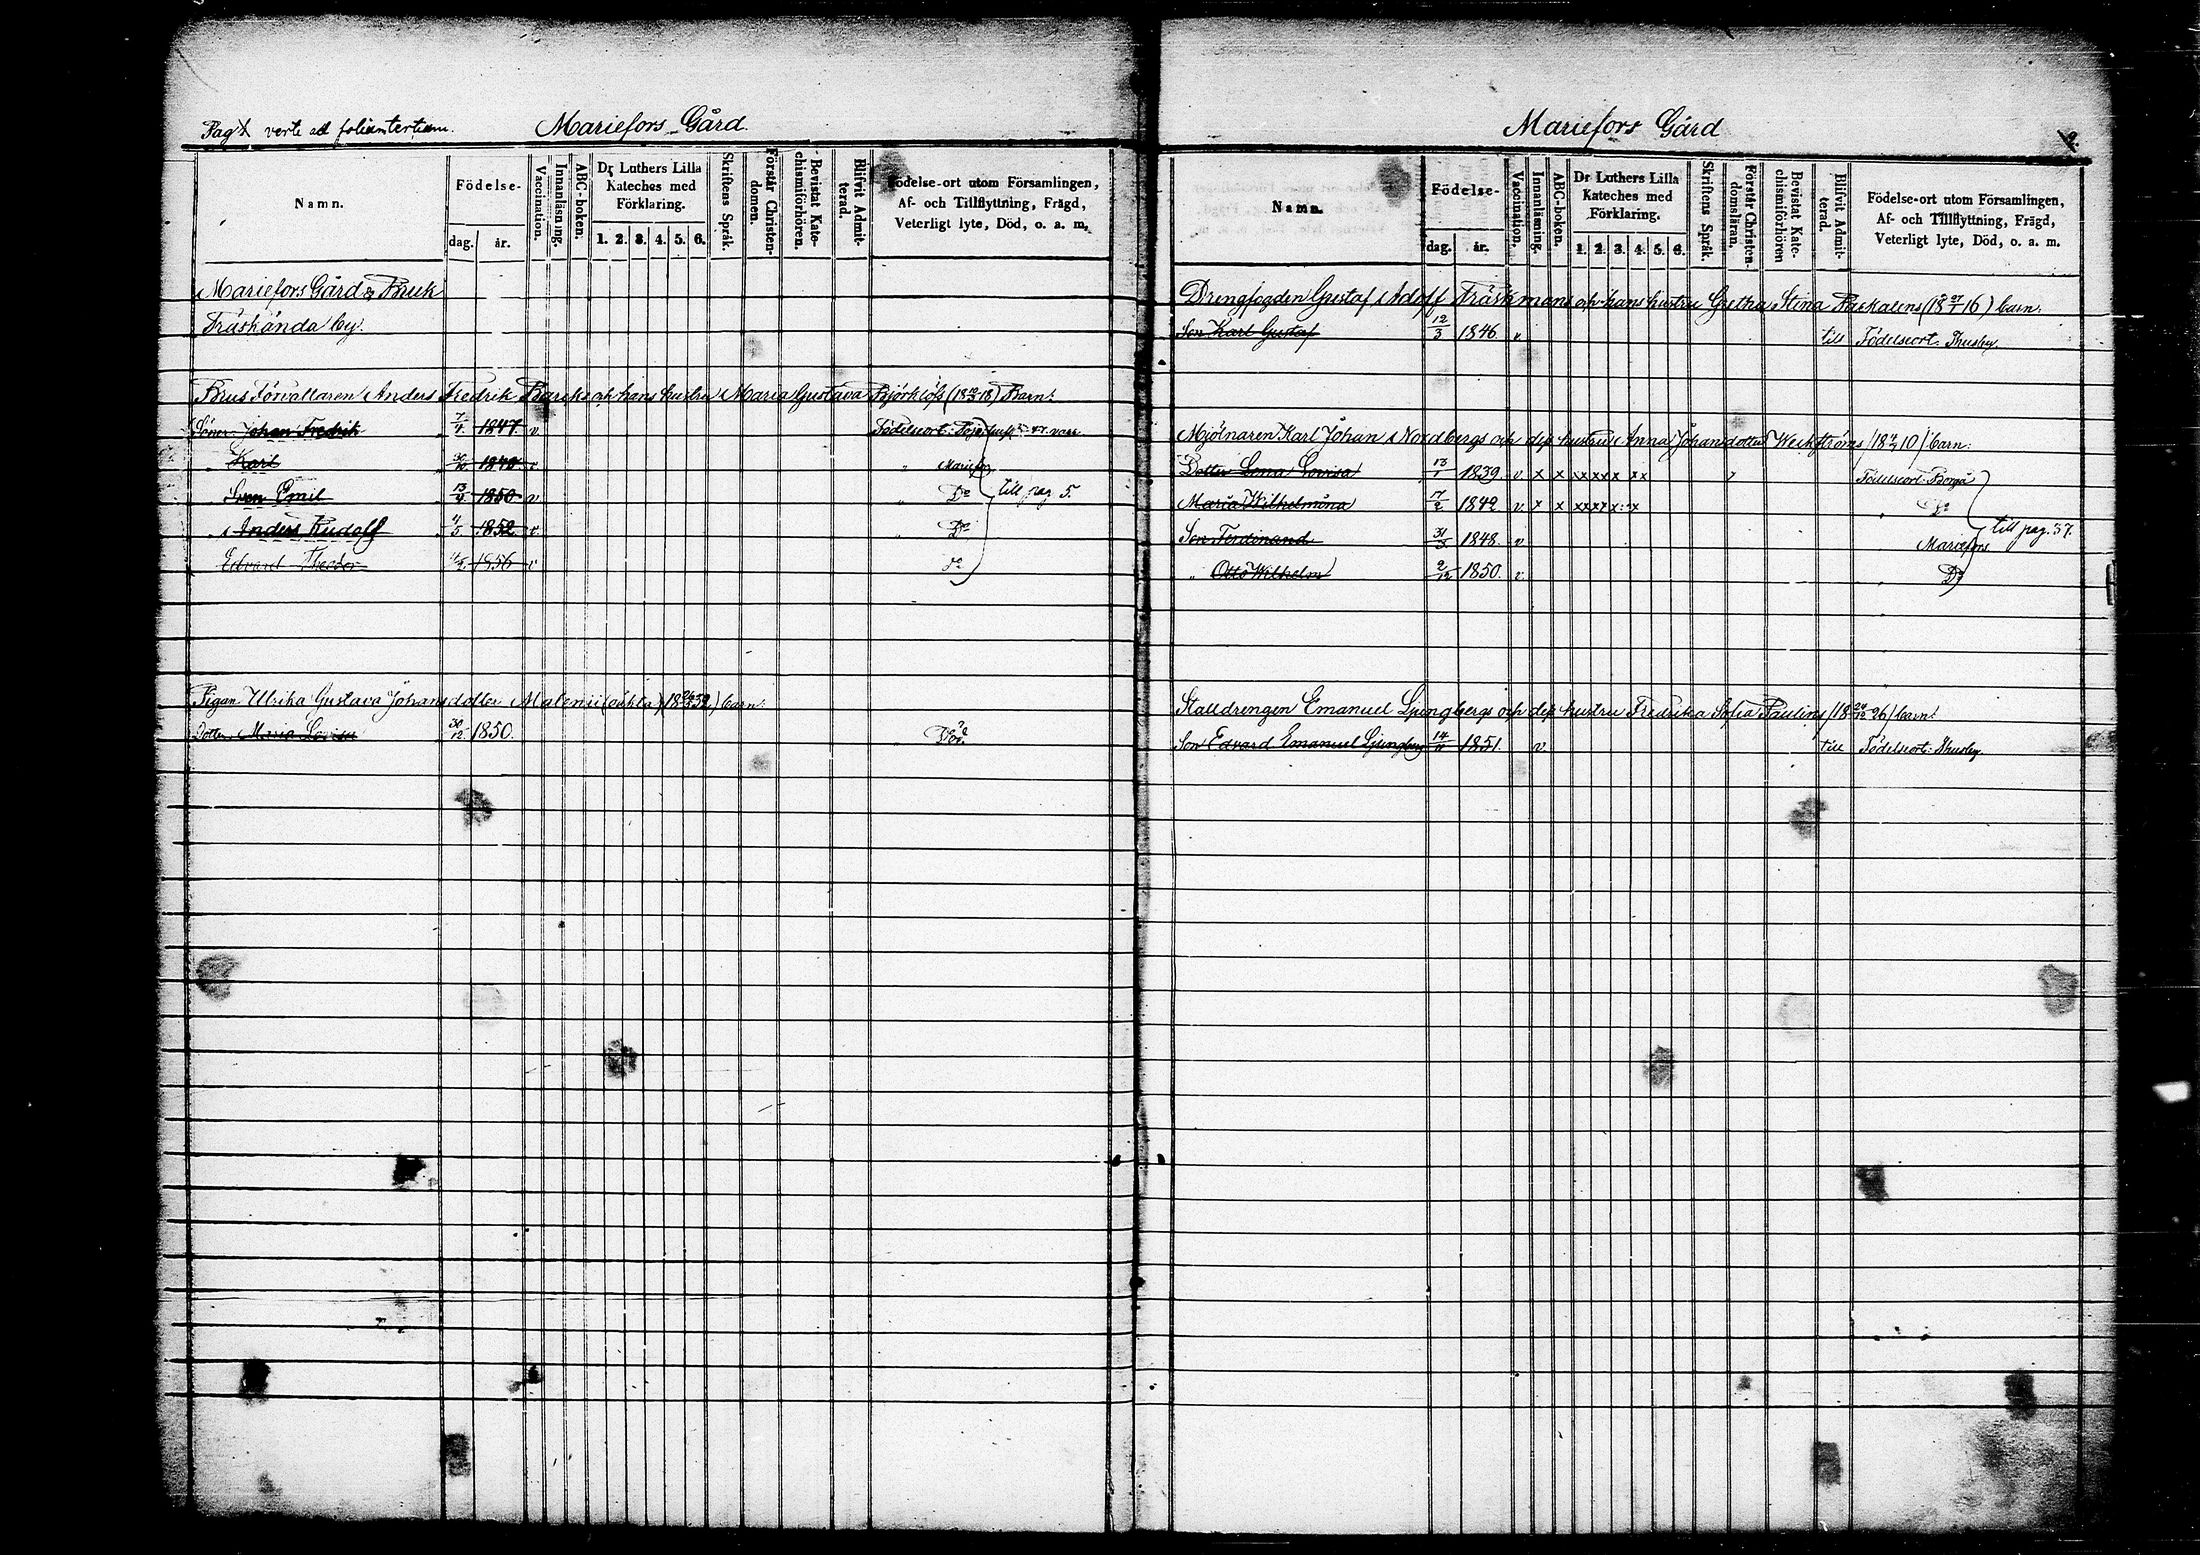 Pag verte ad folium tertium.
Mariefors Gård.
Namn.
Födelse-
dag. år.
Vaccination.
Innanläsning.
ABC-boken.
Dr Luthers Lilla Kateches med Förklaring.
1. 2. 3. 4. 5. 6.
Skriftens Språk.
Förstår Christendomen.
Bevistat Katechismiförhören.
Blifvit Admitterad.
Födelse-ort utom Församlingen,
Af- och Tillflyttning, Frägd,
Veterligt lyte, Död, o. a. m.
Mariefors Gård & Bruk
Träskända by.
Bruks Förvaltaren Anders Fredrik och hans hustru Maria Gustava Björklöf Barn:
Söner Johan Fredrik 7/4 1847 v Födelseort:
" Karl 30/10 v " Mariefors
" Sven Emil 13/4 1850 v " Do till pag 5.
" Anders Rudolf 4/5 1852 v " Do
Edvard Theodor 1856 v Do
Pigan Ulrika Gustava Johansdotter barn:
Dotter Maria Lovisa 30/12 1850. "
Mariefors Gård
2.
Namn.
Födelse-
dag. år.
Vaccination.
Innanläsning.
ABC-boken.
Dr Luthers Lilla Kateches med Förklaring.
1. 2. 3. 4. 5. 6.
Skriftens Språk.
Förstår Christendomsläran.
Bevistat Katechismiförhören
Blifvit Admitterad.
Födelse-ort utom Församlingen,
Af- och Tillflyttning, Frägd,
Veterligt lyte, Död, o. a. m.
Drengfogden Gustaf Adolf Träskmans och hans hustru Gretha Stina barn:
Son Karl Gustaf 12/3 1846. v. till Födelseort. Thusby
Mjölnaren Karl Johan Nordbergs och dess hustru Anna Johansdotter barn:
Dotter Lena Lovisa 13/1 1839. v. x x x x x x x x Födelseort: Borgå
Maria Wilhelmina 17/2 1842 v. x x x x x x x " Do
till pag. 37.
Son Ferdinand 31/3 1848. v Mariefors
" Otto Wilhelm 2/12 1850. v. " Do
Stalldrengen Emanuel Ljungbergs och dess hustru Fredrika Sofia Paulins barn:
Son Edvard Emanuel Ljungberg 14/11 1851. v. till Födelseort: Thusby